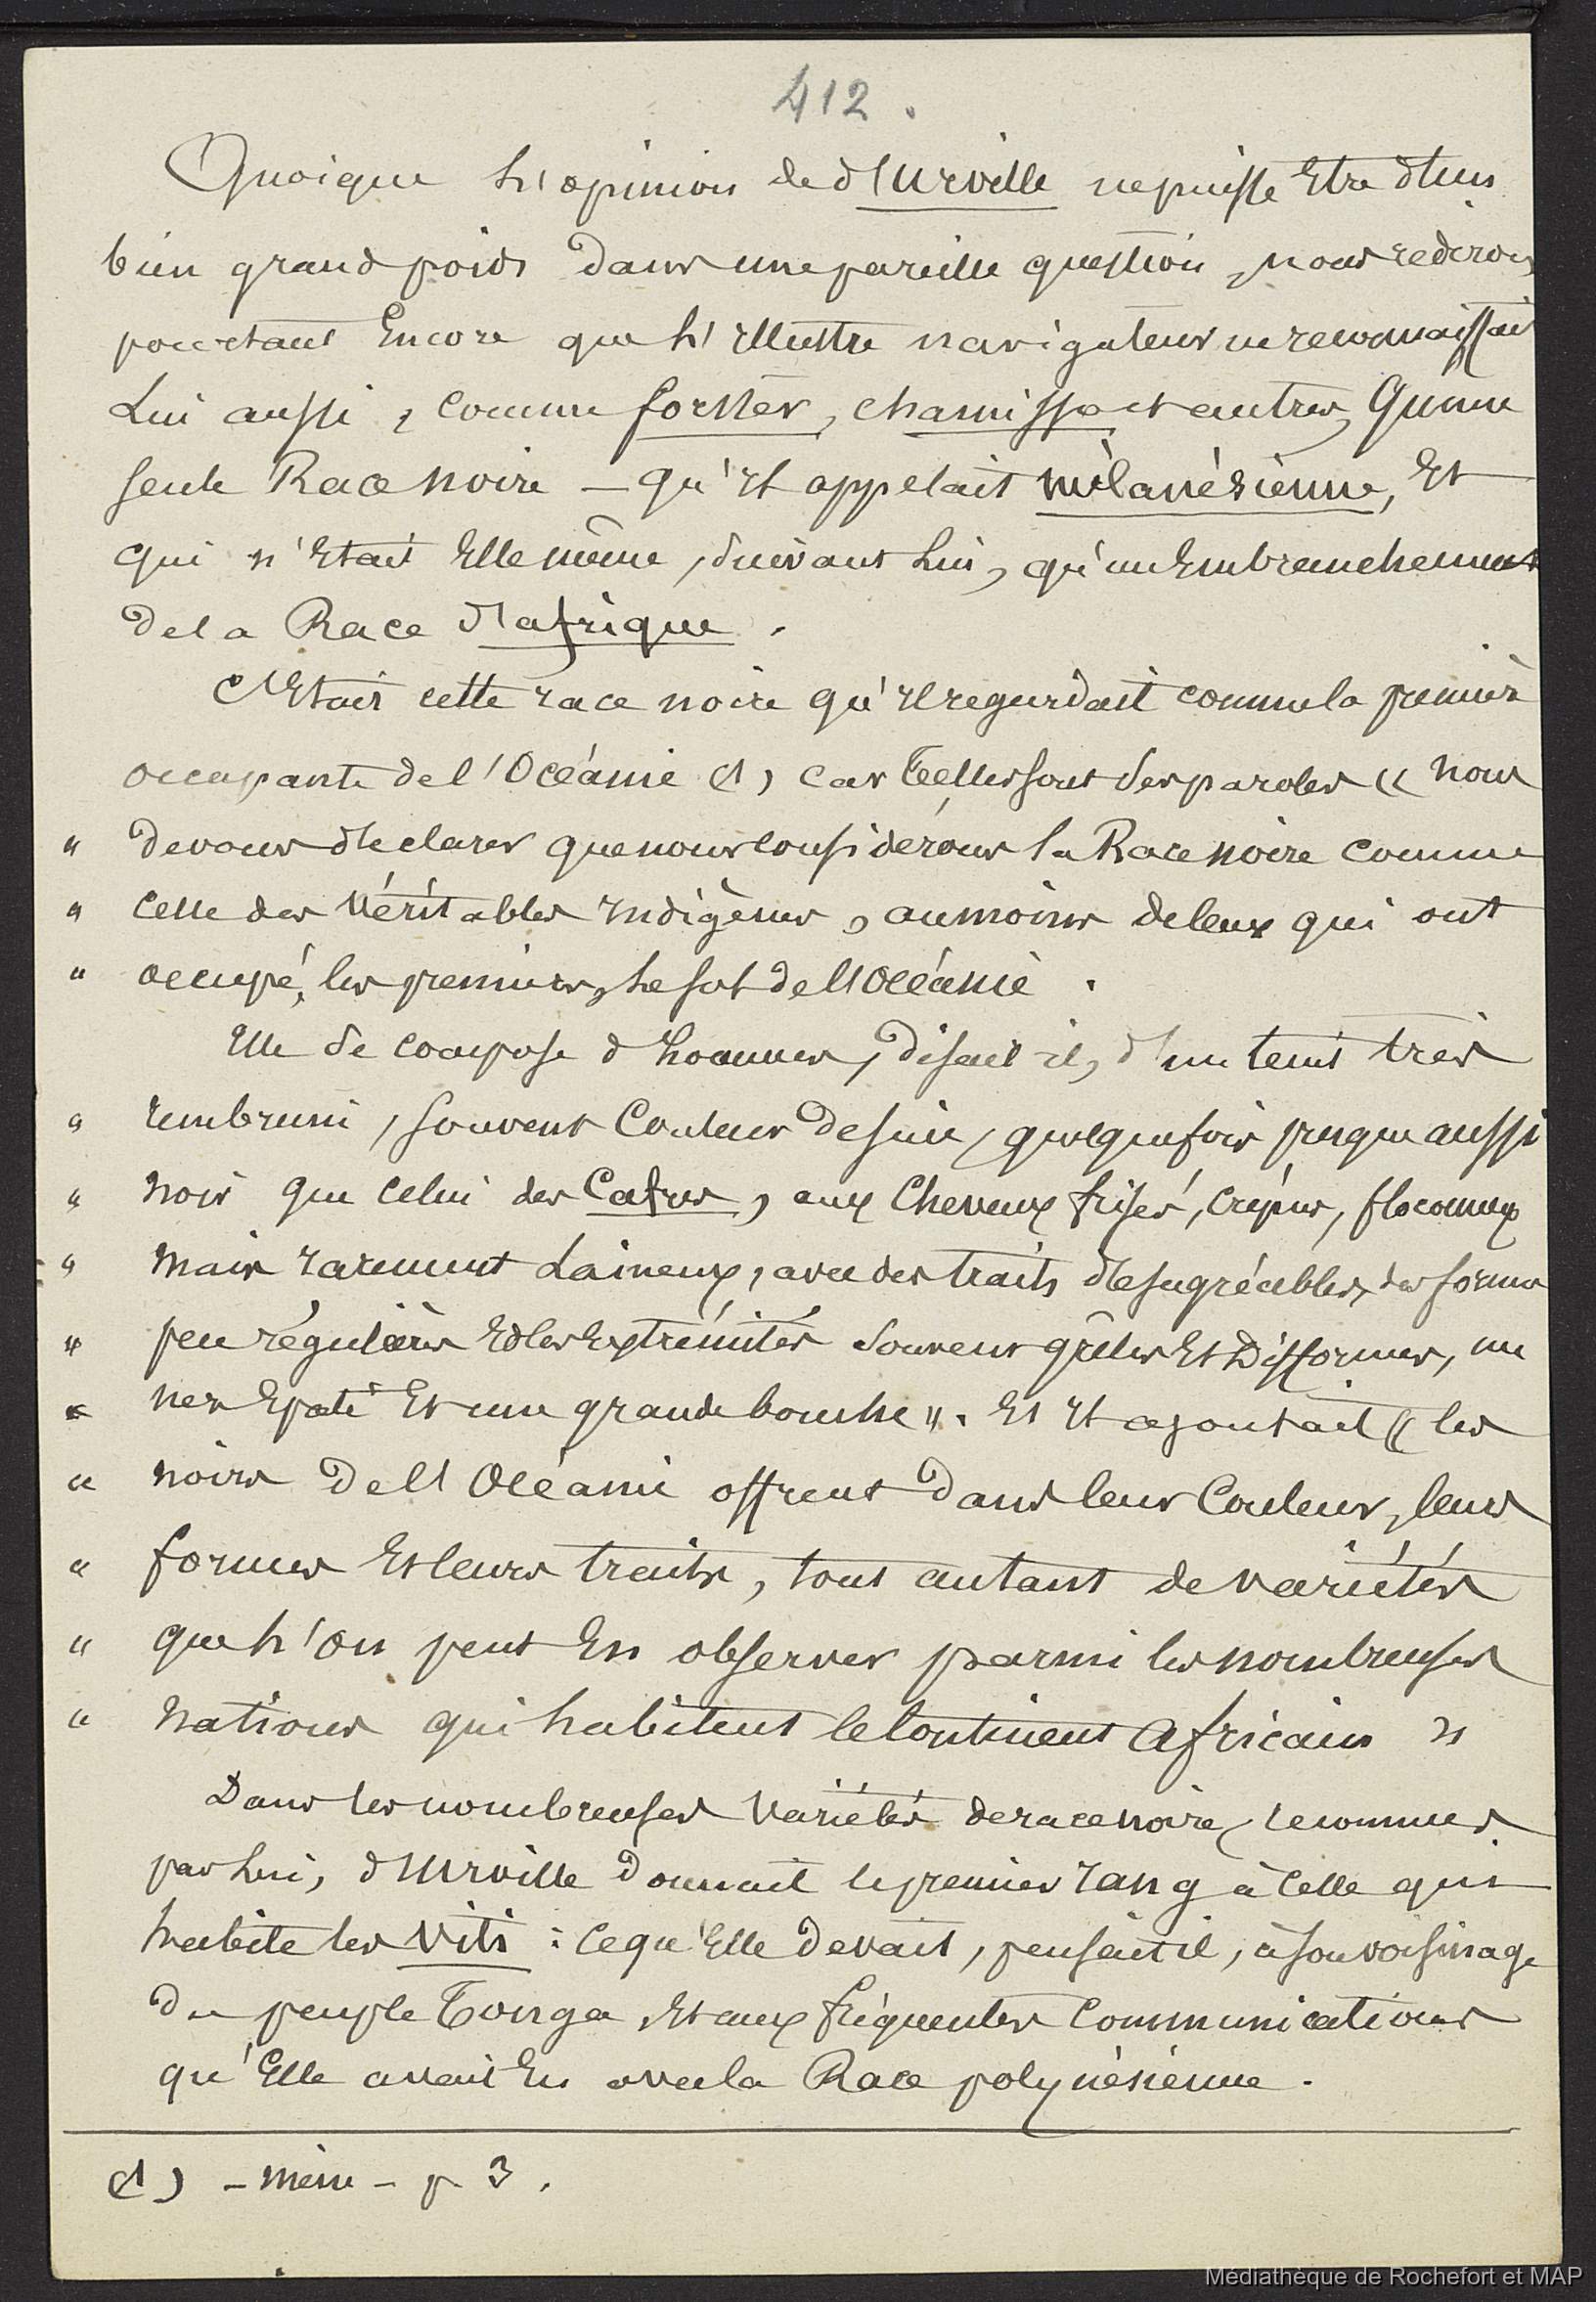 412.
Quoique l'opinion de d'Urville ne puisse Etre d'un
bien grand poids dans une pareille question, nous redirons
pourtant Encore que l'illustre navigateur ne reconnaissait
Lui aussi, comme forster, chamisso et autres, Qu'une
seule Race noire — qu'il appelait mélanésienne, Et
qui n'Etait Elle même, suivant Lui, qu'un Embranchement
de la Race d'afrique.
C'Etait cette race noire qu'il regardait comme la première
occupante de l'Océanie (1) car telles sont ses paroles « nous
" devons déclarer que nous considérons la Race noire comme
" celle des véritables indigènes, au moins de ceux qui ont
" occupé, les premiers, le sol de l'Océanie.
Elle se compose d'hommes, disait-il, d'un teint très
" rembruni, souvent Couleur de suie, quelquefois presque aussi
" noir que celui des Cafres, aux Cheveux frisés, crépus, floconneux
" mais rarement Laineux, avec des traits désagréables, des formes
" peu régulières Et les Extrémités souvent grêles Et Difformes, un
" nez Epaté Et une grande bouche ». Et il ajoutait « les
" noirs De l'Océanie offrent Dans leur Couleur, leurs
" formes Et leurs traits, tout autant de variétés
" que l'on peut En observer parmi les nombreuses
" nations qui habitent le Continent Africain »
Dans les nombreuses variétés de race noire, reconnues
par Lui, d'Urville Donnait le premier rang à celle qui
habite les Viti : ce qu'Elle devait, pensait il, à son voisinage
Du peuple Tonga, Et aux fréquentes Communications
qu'Elle avait Eu avec la Race polynésienne.
(1) - même - p 3.
Médiathèque de Rochefort et MAP